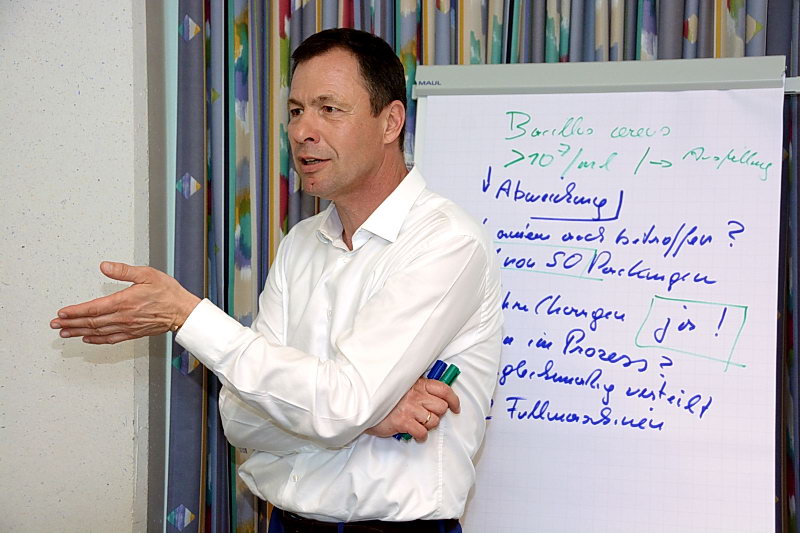 MAUL
Bacillus cereus
>10³/ml /→
Abweichung
auch betroffen?
von 50 Packungen
Chargen ja!
im Prozess?
gleichmäßig verteilt
Füllmaschinen